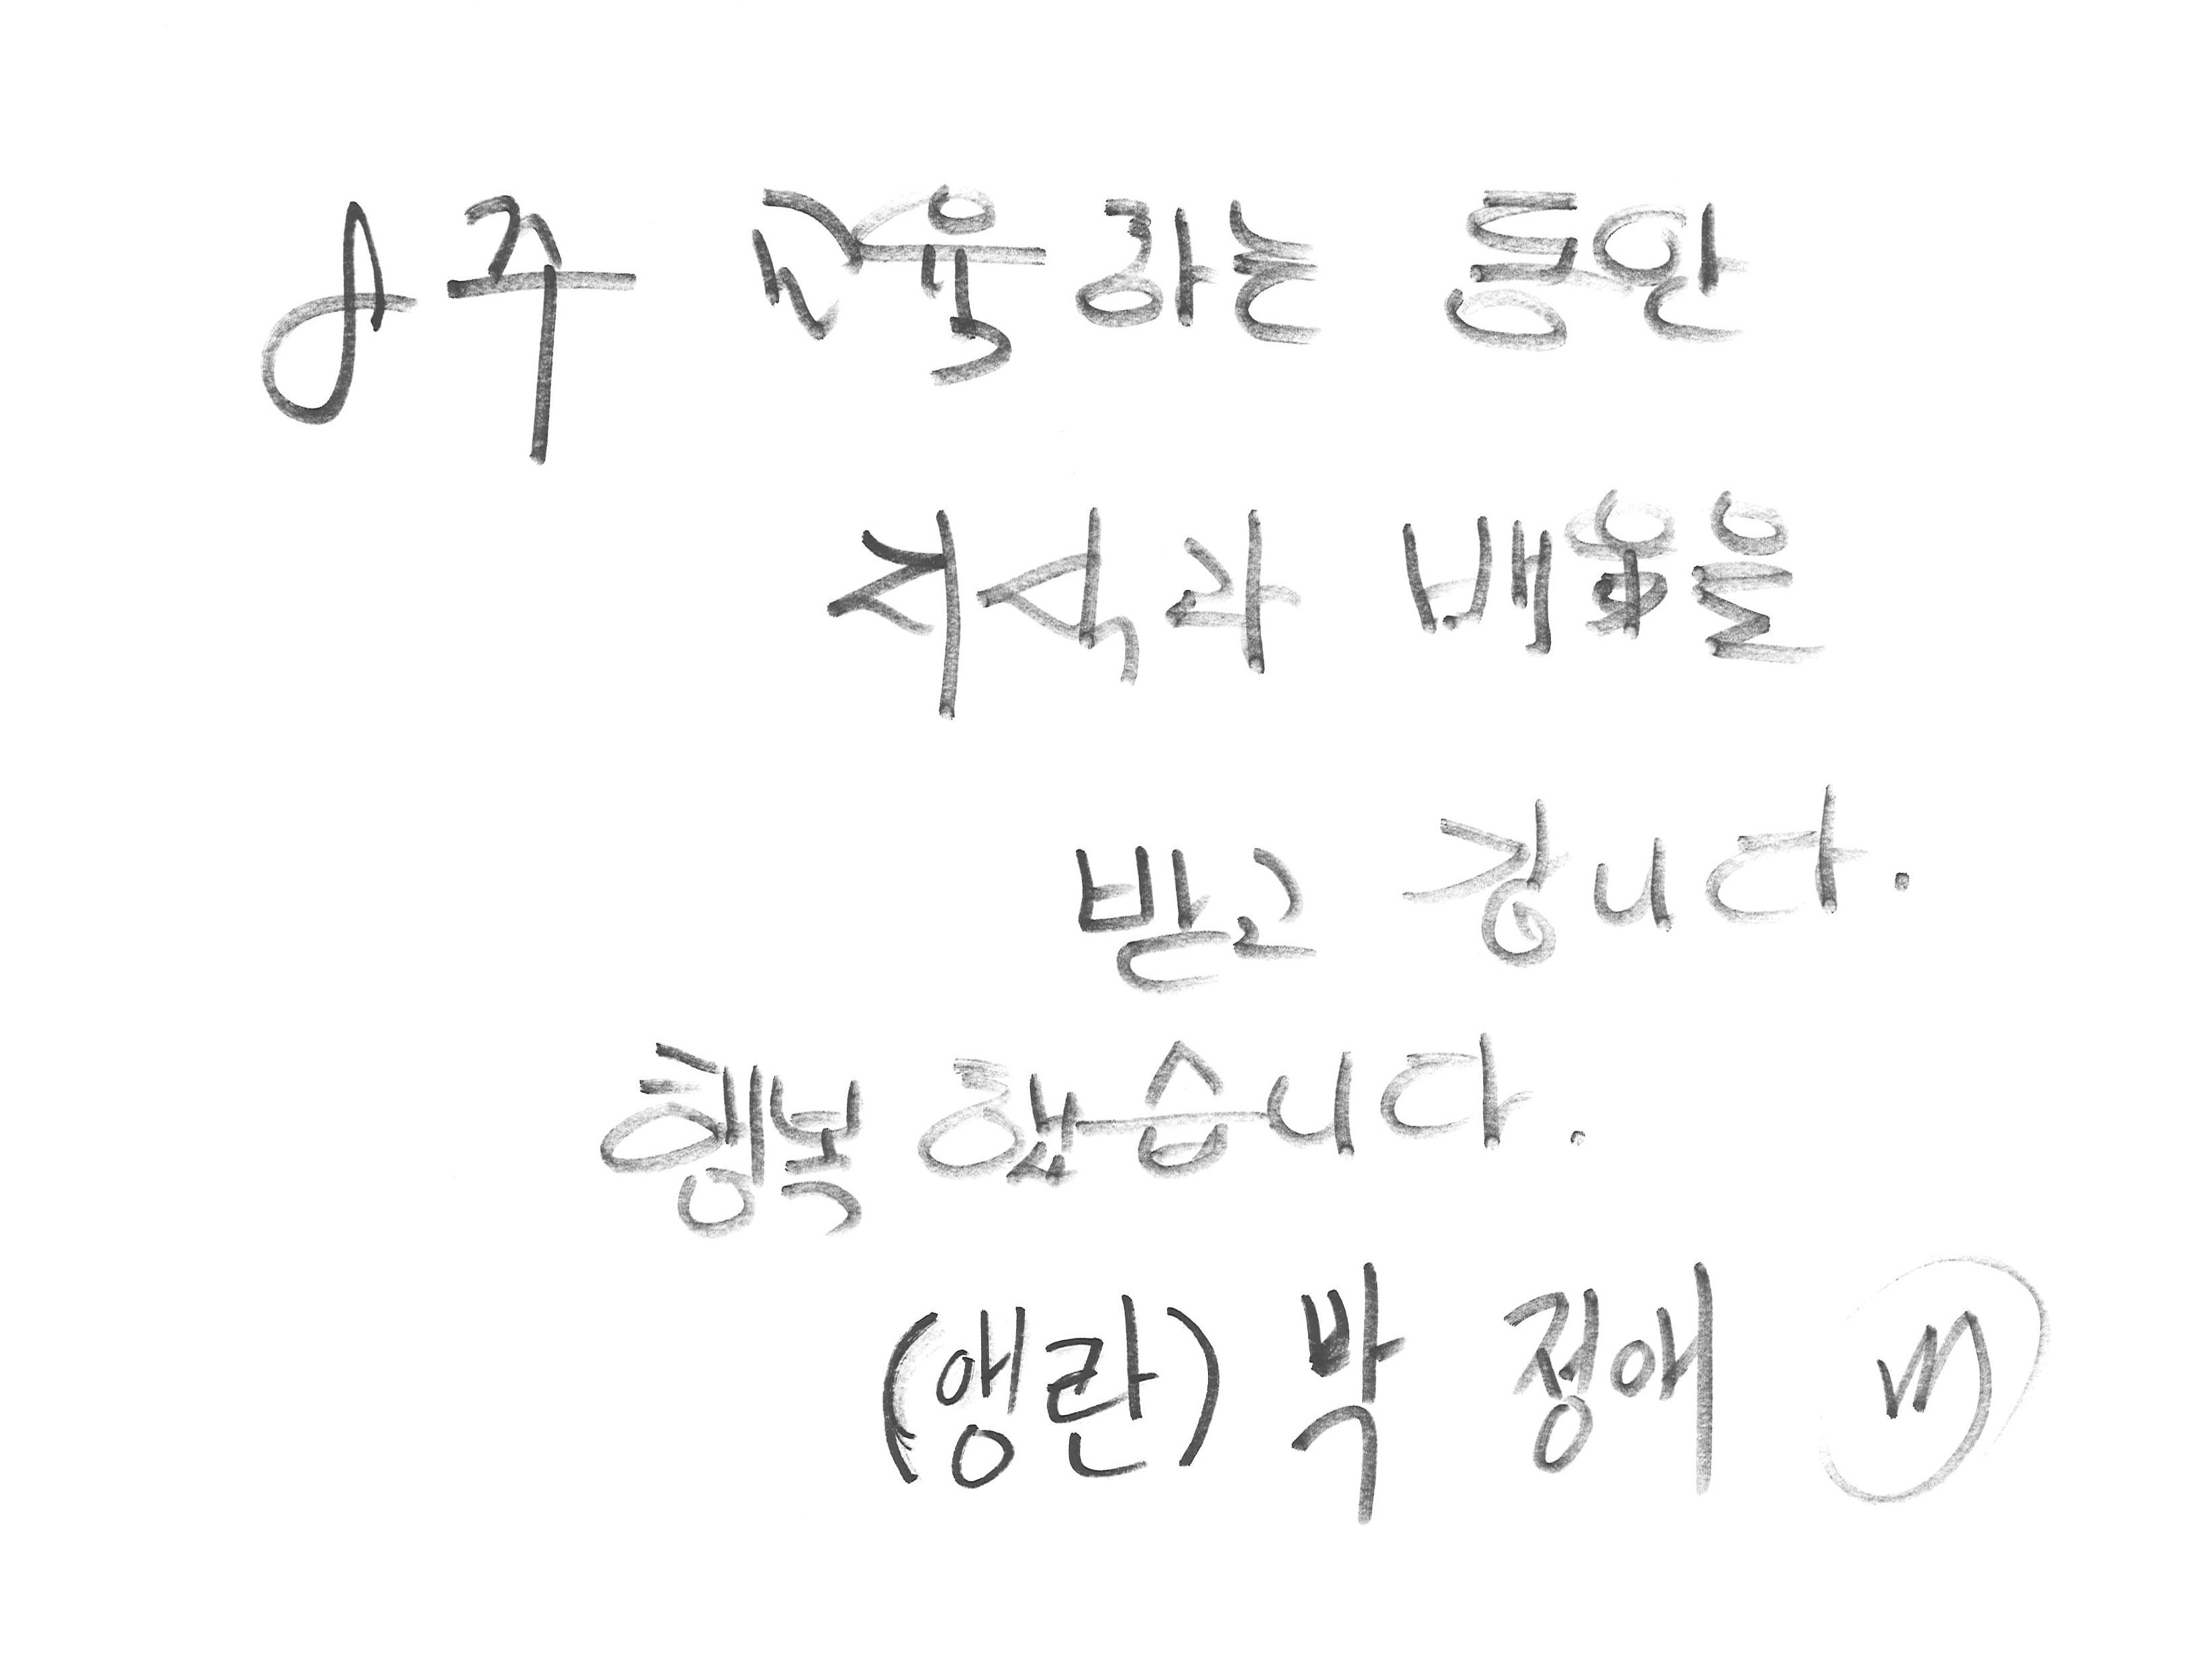 8주 교육하는 동안
지식과 배움을
받고 갑니다.
행복 했습니다.
(앵란) 박 정애